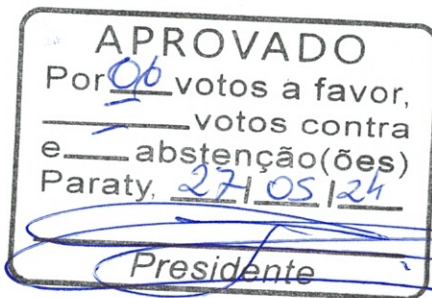 APROVADO
Por 06 votos a favor,
— votos contra
e ___ abstenção(ões)
Paraty, 27/05/24
Presidente